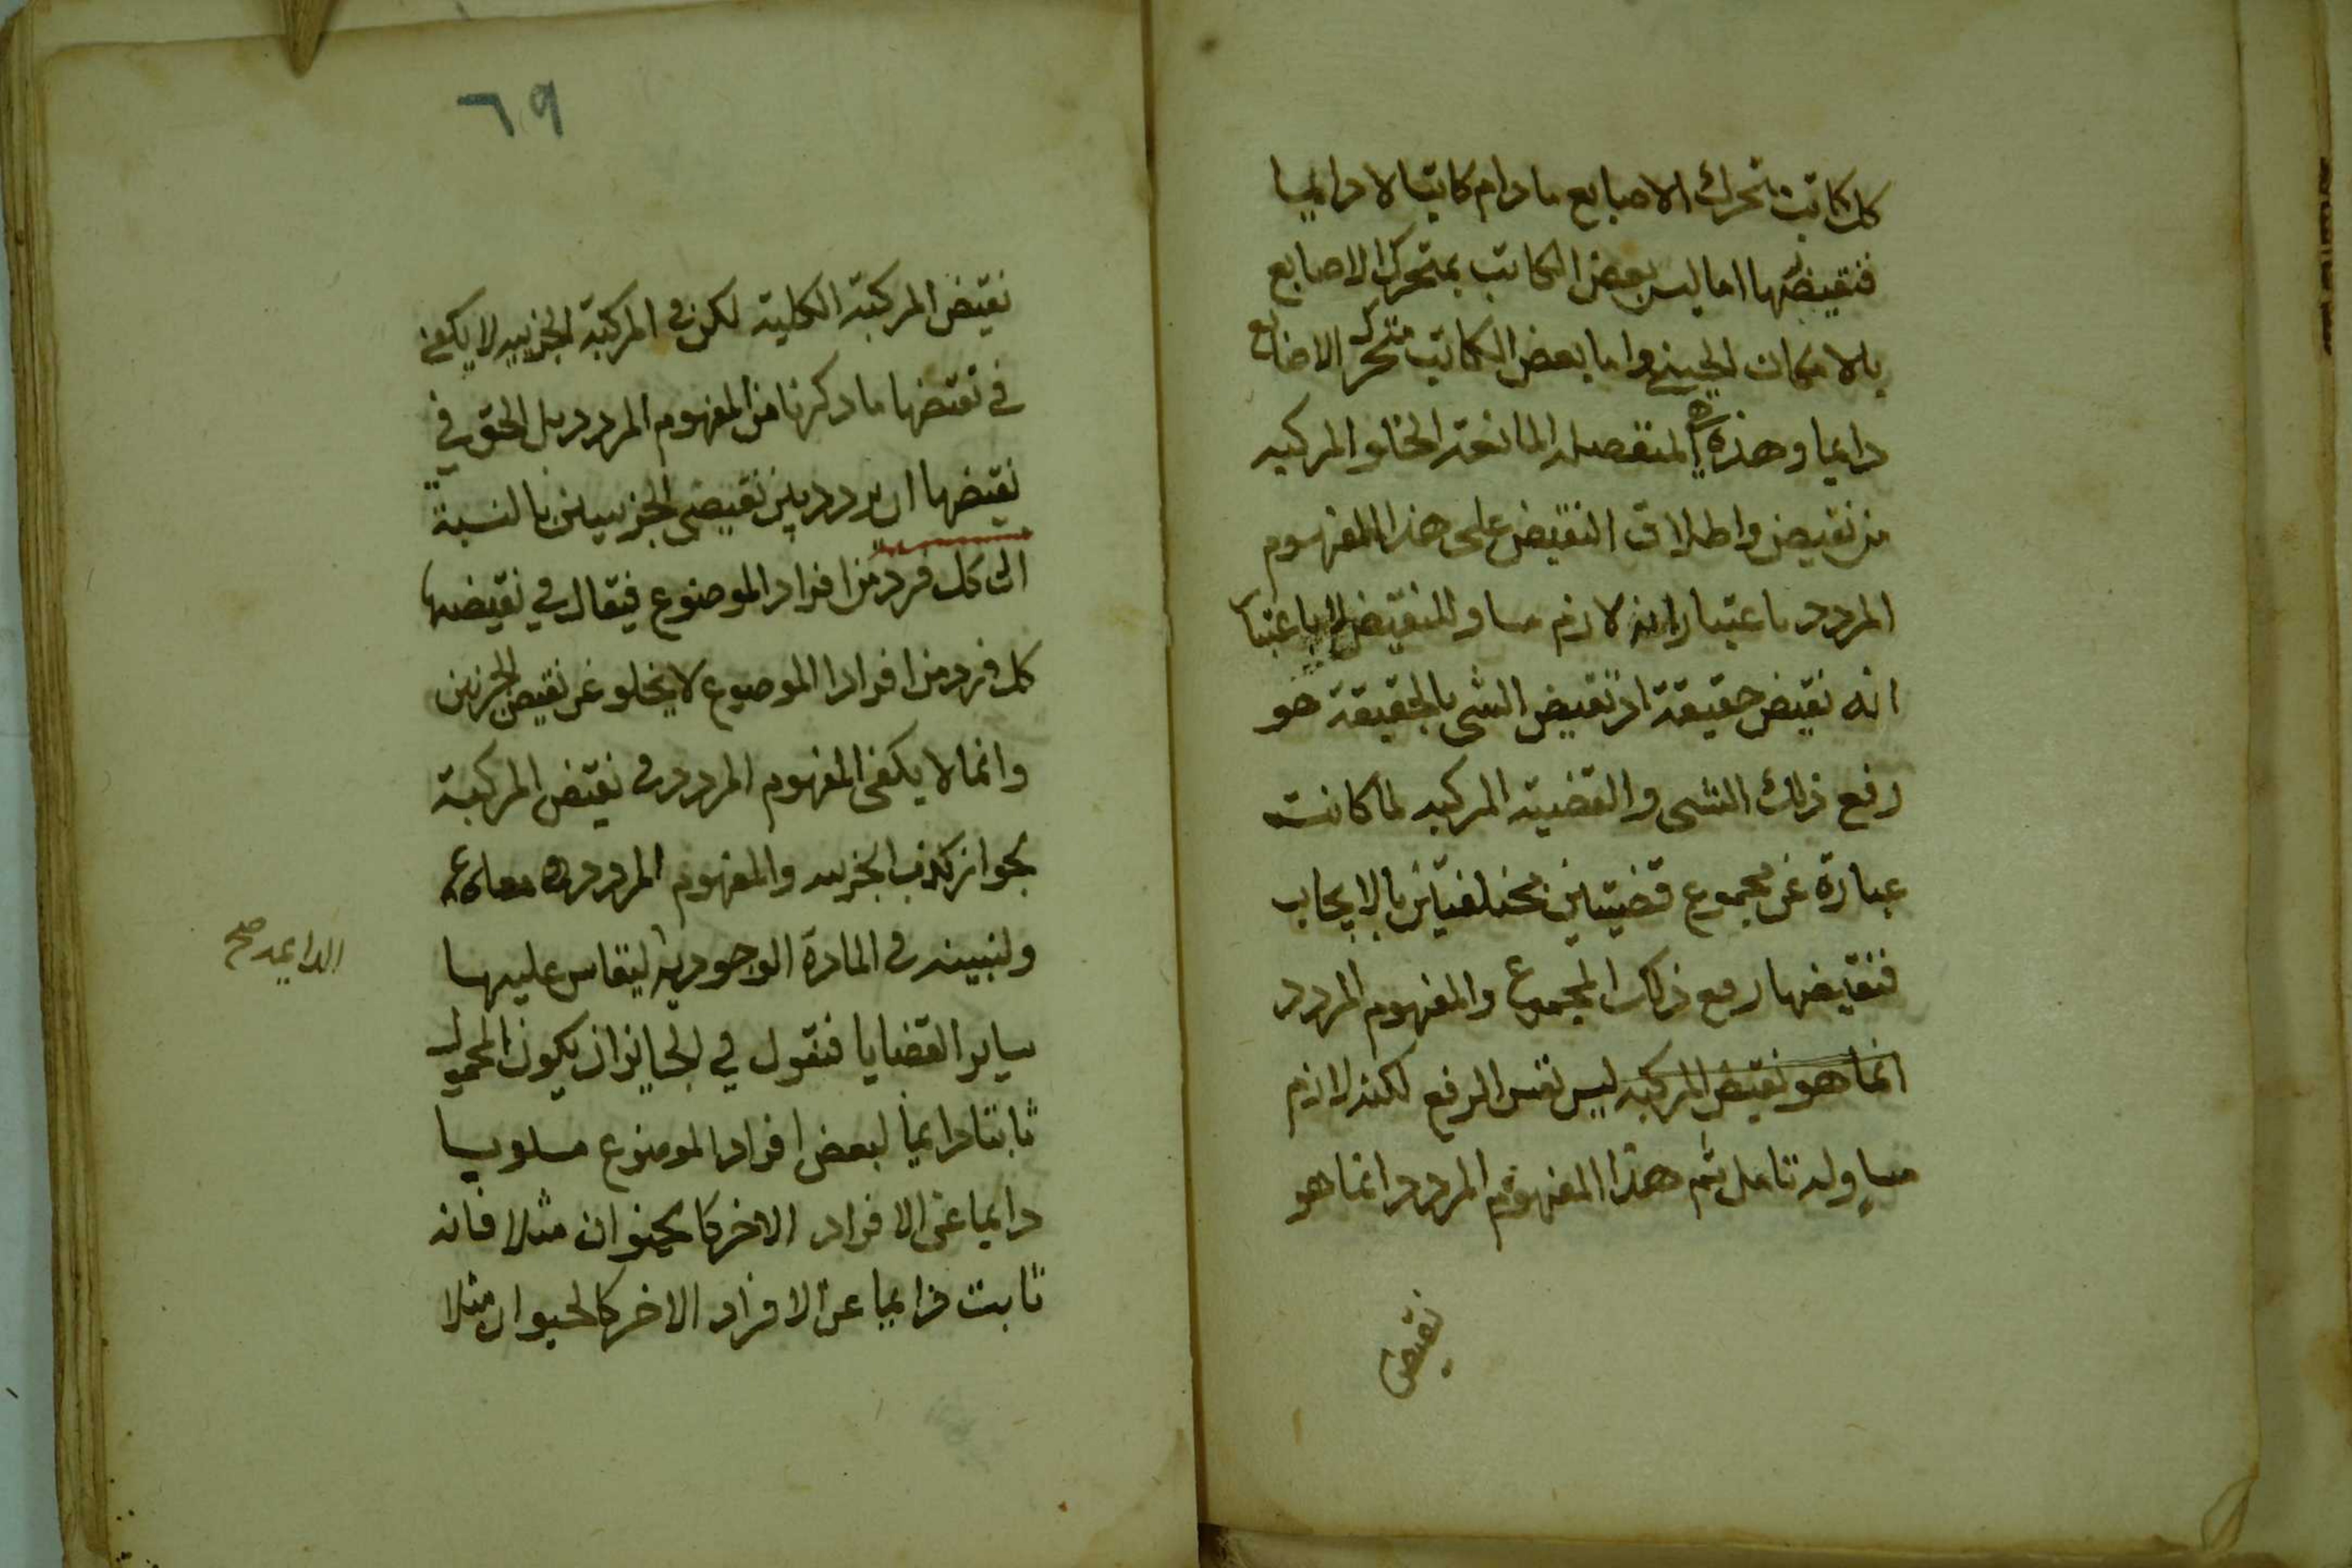 كل كاتب متحرك الاصابع مادام كاتبا لا دايما
فنقيضها اما ليس بعض الكاتب بمتحرك الاصابع
بالامكان الحيني واما بعض الكاتب متحرك الاصابع
دايما وهذه المنفصلة المانعة الخلو المركبه
من نقيض واطلاق النقيض على هذا المفهوم
المردد باعتبار انه لازم مساو للنقيض لا باعتبار
انه نقيض حقيقة اذ نقيض الشى بالحقيقة هو
رفع ذلك الشى والقضيه المركبه لما كانت
عبارة عن مجموع قضيتين مختلفتين بالايجاب
فنقيضها رفع ذلك المجموع والمفهوم المردد
انما هو نقيض المركبه ليس نفس الرفع لكنه لازم
مساو له تامل ثم هذا المفهوم المردد انما هو
نقيض
٦٩
نقيض المركبة الكلية لكن في المركبة الجزييه لا يكفي
في نقيضها ما ذكرنا من المفهوم المردد بل الحق في
نقيضها ان يردد بين نقيضي الجزيين بالنسبة
الى كل فرد من افراد الموضوع فيقال في نقيضها
كل فرد من افراد الموضوع لا يخلو عن نقيض الجزيين
وانما لا يكفى المفهوم المردد في نقيض المركبة
بجواز كذب الجزييه والمفهوم المردد معا
ولنبينه في المادة الوجودية ليقاس عليها
الدايمه صح
ساير القضايا فنقول في الجايز ان يكون المحمول
ثابتا دايما لبعض افراد الموضوع مسلوبا
دايما عن الافراد الاخر كالحيوان مثلا فانه
ثابت دايما عن الافراد الاخر كالحيوان مثلا